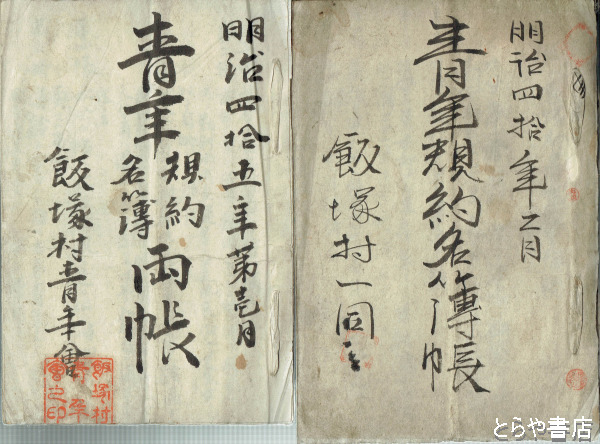 明治四拾年二月
青年規約名簿帳
飯塚村一同
明治四拾五年第壱月
青年
規約
名簿
両帳
飯塚村青年會
飯塚村
青年
會之印
とらや書店